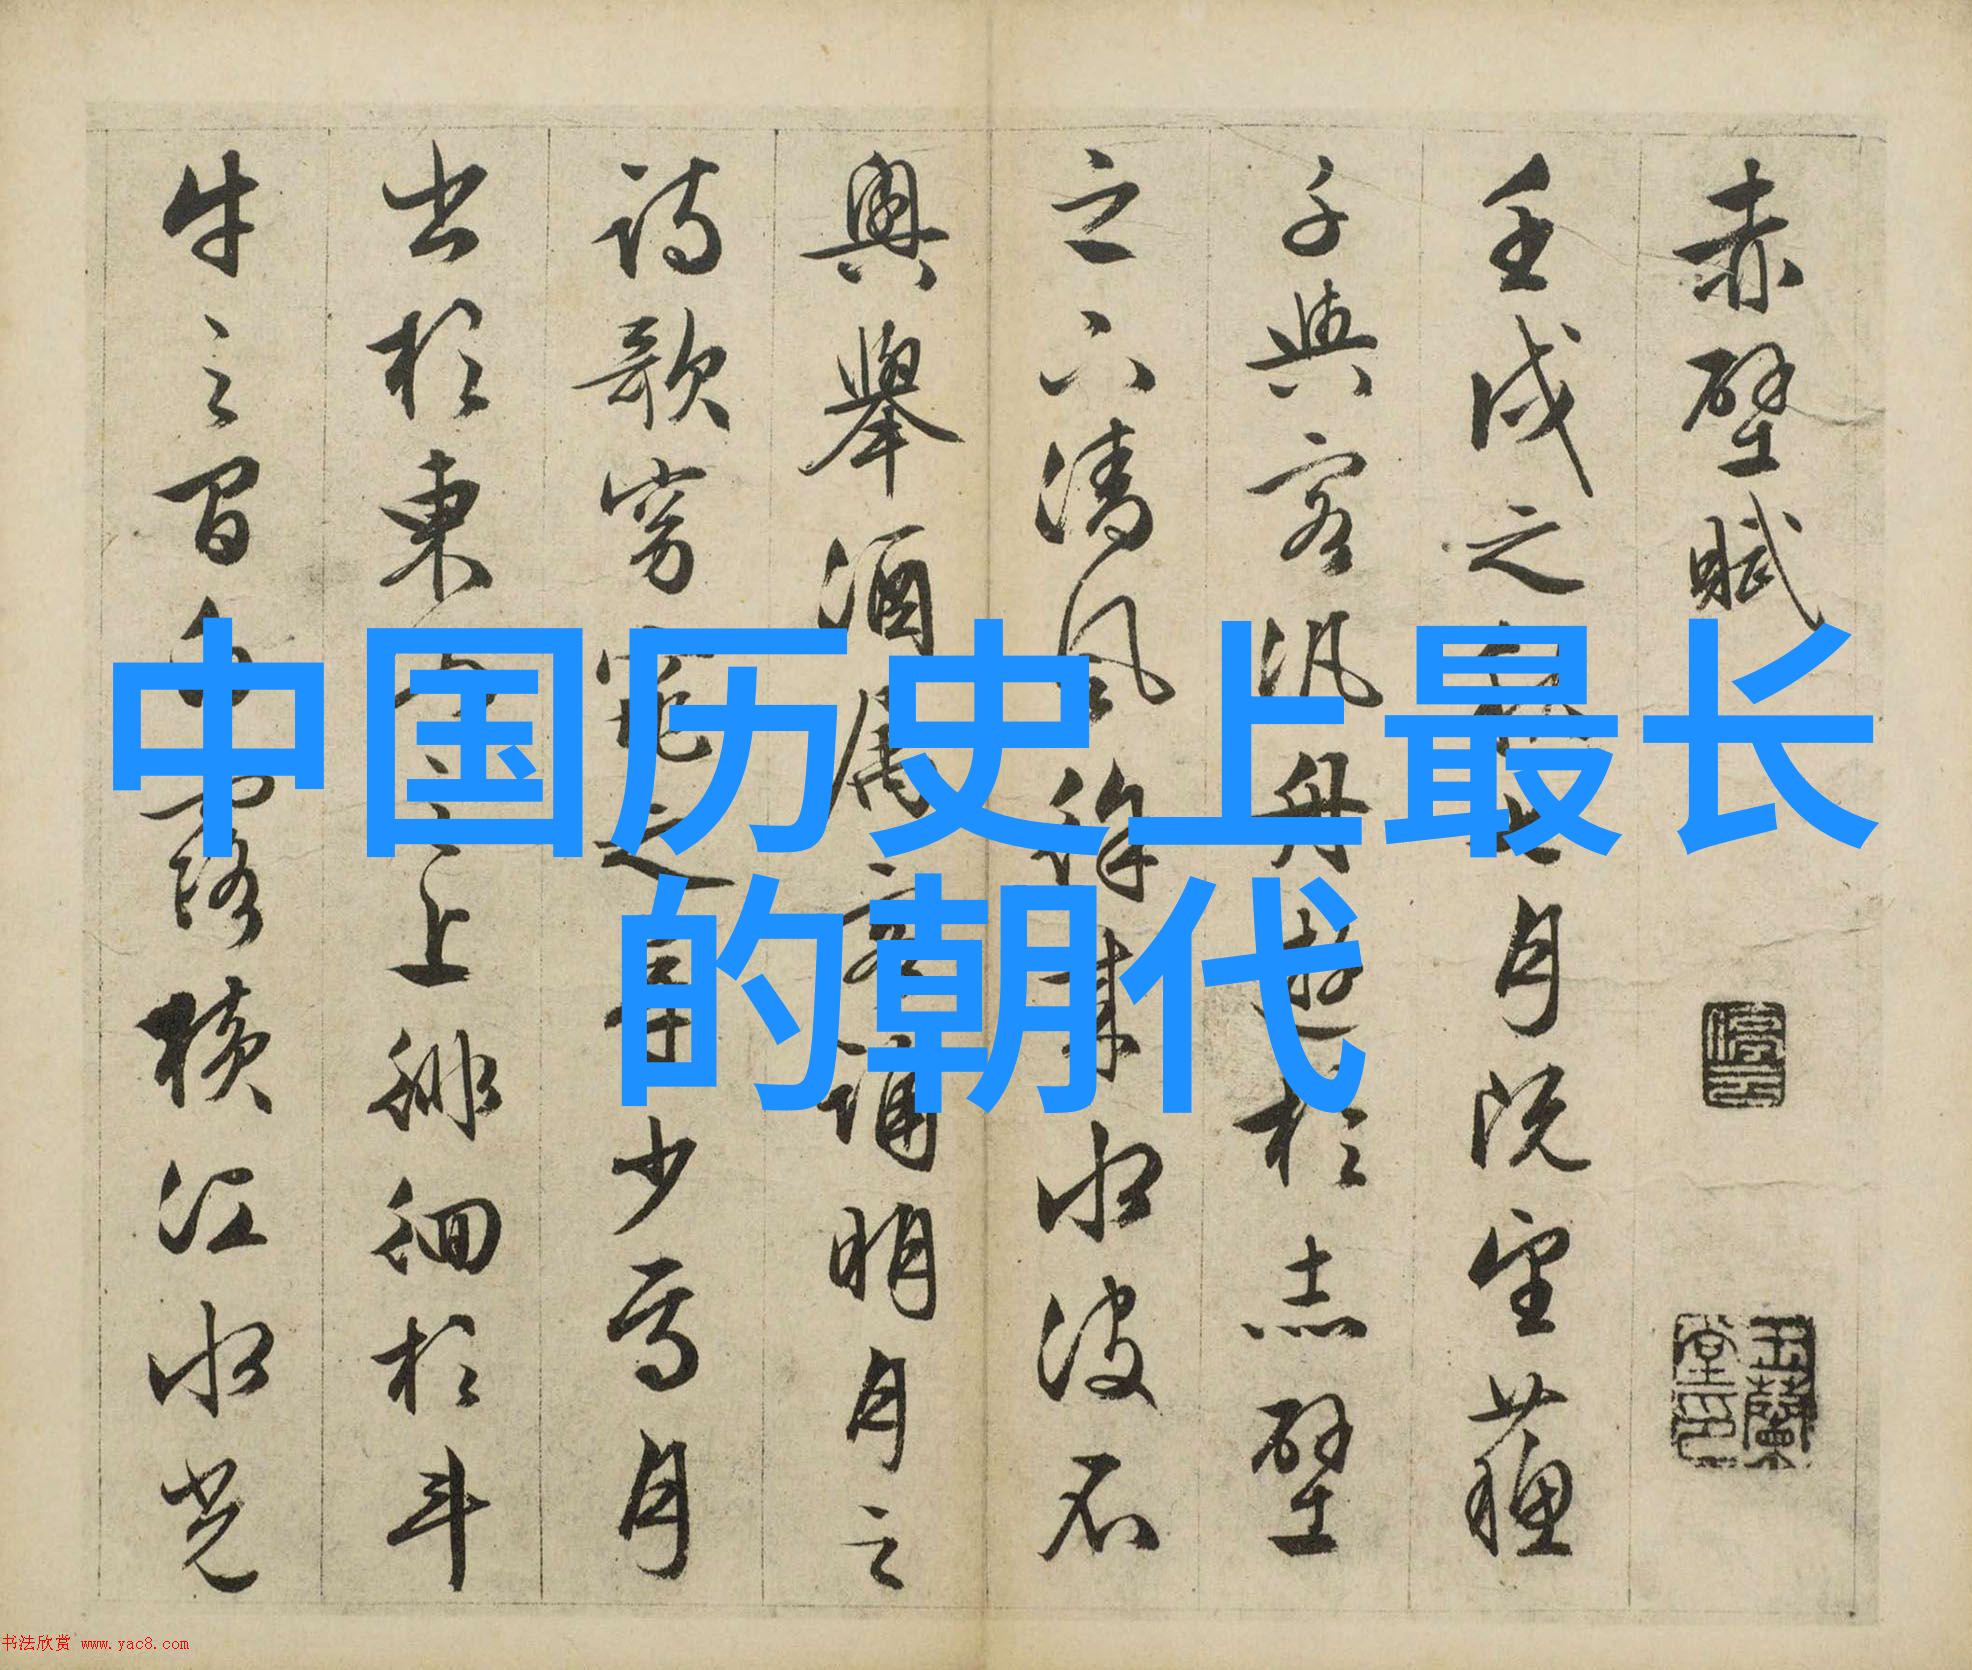 中国历史上最长
的朝代
赤壁賦
壬戌之秋七月既望蘇
子與客汎舟遊於赤壁
之下清風徐來水波不
興舉酒屬客誦明月之
詩歌窈窕之章少焉月
出於東山之上徘徊於斗
牛之間白露橫江水光
玉蘭
堂印
书法欣赏 www.yac8.com